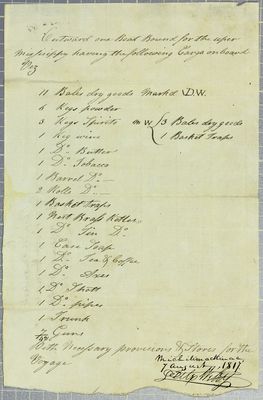 Outward one Boat Bound for the uper
Missisippy having the following Cargo on board
Viz
11 Bales dry goods Markd D.W.
6 Kegs powder
3 Kegs Spirits on W / 3 Bales dry goods
1 Keg wine 1 Basket Traps
1 Do. Butter
1 Do. Tobacco
1 Barrel Do. —
2 Rolls Do. —
1 Basket Traps
1 Nest Brass Kettles
1 Do. Tin Do.
1 Case Soap
1 Do. Tea & Coffee
1 Do. Axes
1 Do. Shott
1 Do. pipes
1 Trunk
7 Guns
With Necessary provisions & Stores for the
Voyage
Michilimackinac
7 August 1817